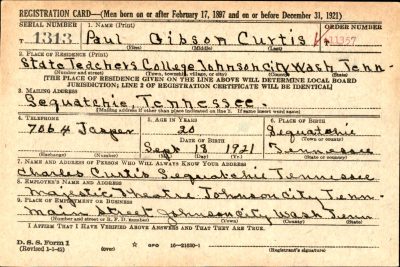 REGISTRATION CARD—(Men born on or after February 17, 1897 and on or before December 31, 1921)
SERIAL NUMBER 1. NAME (Print) ORDER NUMBER
1313 Paul Gibson Curtis 11357
(First) (Middle) (Last)
2. PLACE OF RESIDENCE (Print)
State Teachers College Johnson City Wash Tenn.
(Number and street) (Town, township, village, or city) (County) (State)
[THE PLACE OF RESIDENCE GIVEN ON THE LINE ABOVE WILL DETERMINE LOCAL BOARD
JURISDICTION; LINE 2 OF REGISTRATION CERTIFICATE WILL BE IDENTICAL]
3. MAILING ADDRESS
Sequatchie, Tennessee.
[Mailing address if other than place indicated on line 2. If same insert word same]
4. TELEPHONE 5. AGE IN YEARS 6. PLACE OF BIRTH
706 4 Jasper 20 Sequatchie
DATE OF BIRTH (Town or county)
Sept 18 1921 Tennessee
(Exchange) (Number) (Mo.) (Day) (Yr.) (State or country)
7. NAME AND ADDRESS OF PERSON WHO WILL ALWAYS KNOW YOUR ADDRESS
Charles Curtis Sequatchie Tennessee
8. EMPLOYER'S NAME AND ADDRESS
Majestic Theatre Johnson City Tenn.
9. PLACE OF EMPLOYMENT OR BUSINESS
Main Street Johnson City Wash Tenn
(Number and street or R. F. D. number) (Town) (County) (State)
I AFFIRM THAT I HAVE VERIFIED ABOVE ANSWERS AND THAT THEY ARE TRUE.
D. S. S. Form 1
(Revised 1-1-42) (over) GPO 16—21630-1 (Registrant's signature)